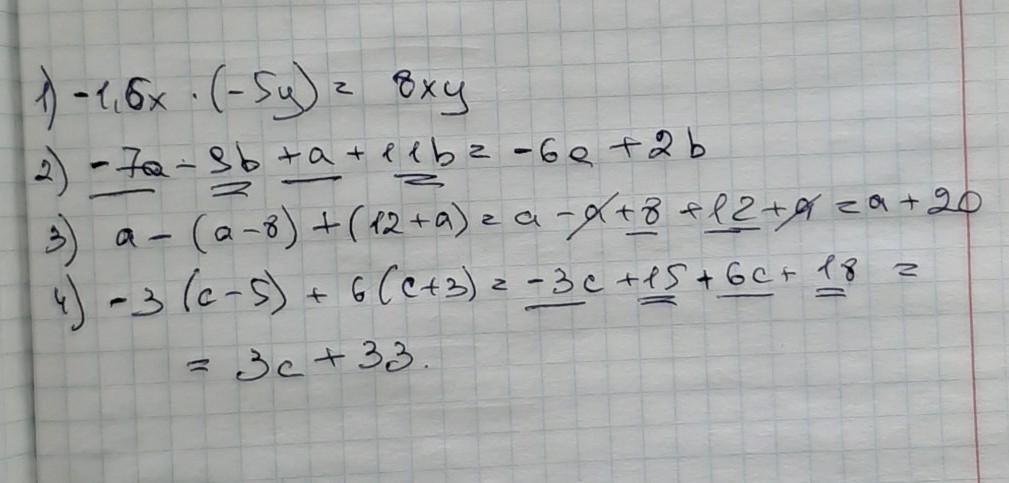 1) -1,6x · (-5y) = 8xy
2) -7a - 9b + a + 11b = -6a + 2b
3) a - (a-8) + (12+a) = a - a + 8 + 12 + a = a + 20
4) -3 (c-5) + 6 (c+3) = -3c + 15 + 6c + 18 =
= 3c + 33.